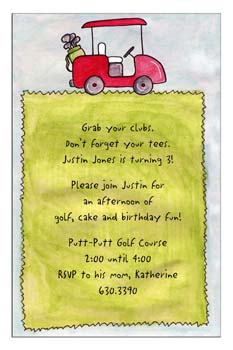 Grab your clubs.
Don't forget your tees.
Justin Jones is turning 3!
Please join Justin for
an afternoon of
golf, cake and birthday fun!
Putt-Putt Golf Course
2:00 until 4:00
RSVP to his mom, Katherine
630.3390